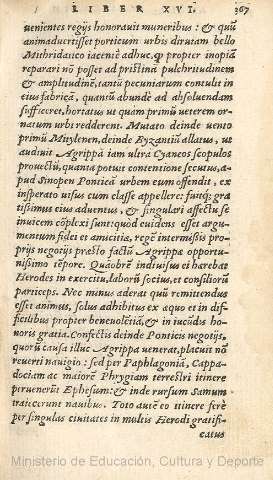 LIBER XVI. 367
uenientes regijs honorauit muneribus: & quũ
animaduertisset porticum urbis dirutam bello
Mithridatico iacenté adhuc, q̃ propter inopiã
reparari nõ posset ad pristinã pulchritudinem
& amplitudinẽ, tantũ pecuniarum contulit in
eius fabricã, quantũ abundè ad absoluendam
sufficeret, hortatus ut quam primũ ueterem or-
natum urbi redderent. Mutato deinde uento
primũ Mitylenen, deinde Byzantiũ allatus, ut
audiuit Agrippã iam ultra Cyaneos scopulos
prouectũ, quanta potuit contentione secutus, a-
pud Sinopen Ponticã urbem eum offendit, ex
insperato uisus cum classe appellere: fuitq́; gra
tissimus eius aduentus, & singulari affectu se
inuicem cõplexi sunt: quòd euidens esset argu-
mentum fidei et amicitiæ, regẽ intermissis pro-
prijs negocijs præsto factũ Agrippæ opportu-
nissimo tẽpore. Quãobrẽ indiuisus ei hærebat
Herodes in exercitu, laborũ socius, et consiliorũ
particeps. Nec minus aderat quũ remittendus
esset animus, solus adhibitus ex æquo et in dif-
ficilibus propter beneuolẽtiã, & in iucũdis ho-
noris gratia. Confectis deinde Ponticis negocijs,
quorũ causa illuc Agrippa uenerat, placuit nõ
reuerti nauigio: sed per Paphlagoniã, Cappa-
dociam ac maiorẽ Phrygiam terrestri itinere
peruenerũt Ephesum: & inde rursum Samum
traiecerunt nauibus. Toto autẽ eo itinere ferè
per singulas ciuitates in multis Herodi gratifi-
catus
Ministerio de Educación, Cultura y Deporte